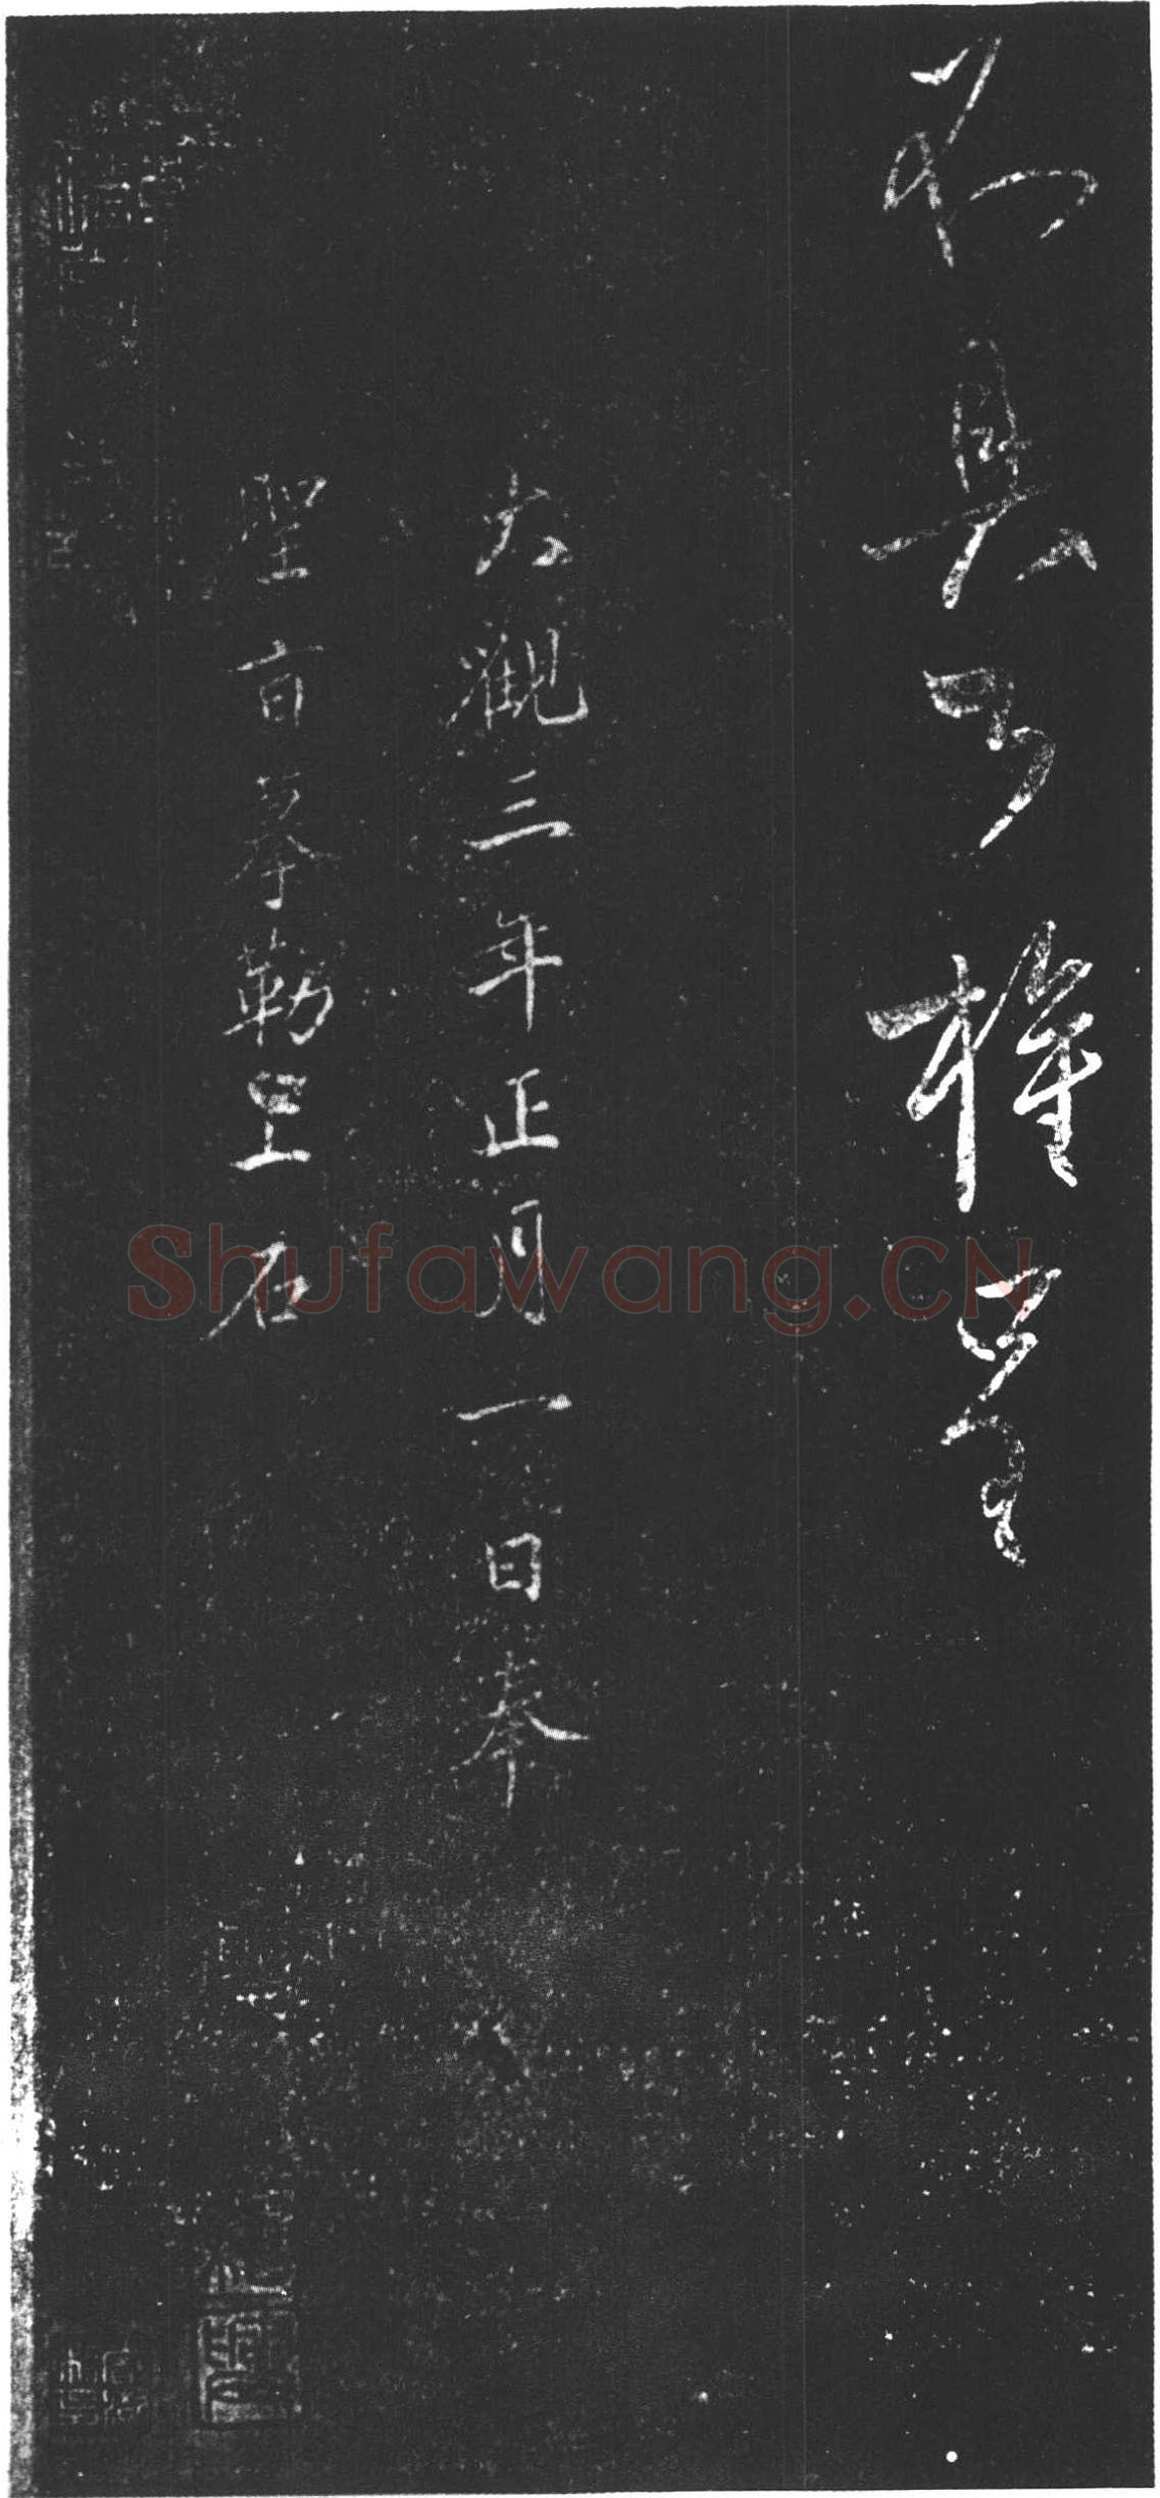 不具權
大觀三年正月一日奉
聖旨摹勒上石
Shufawang.CN